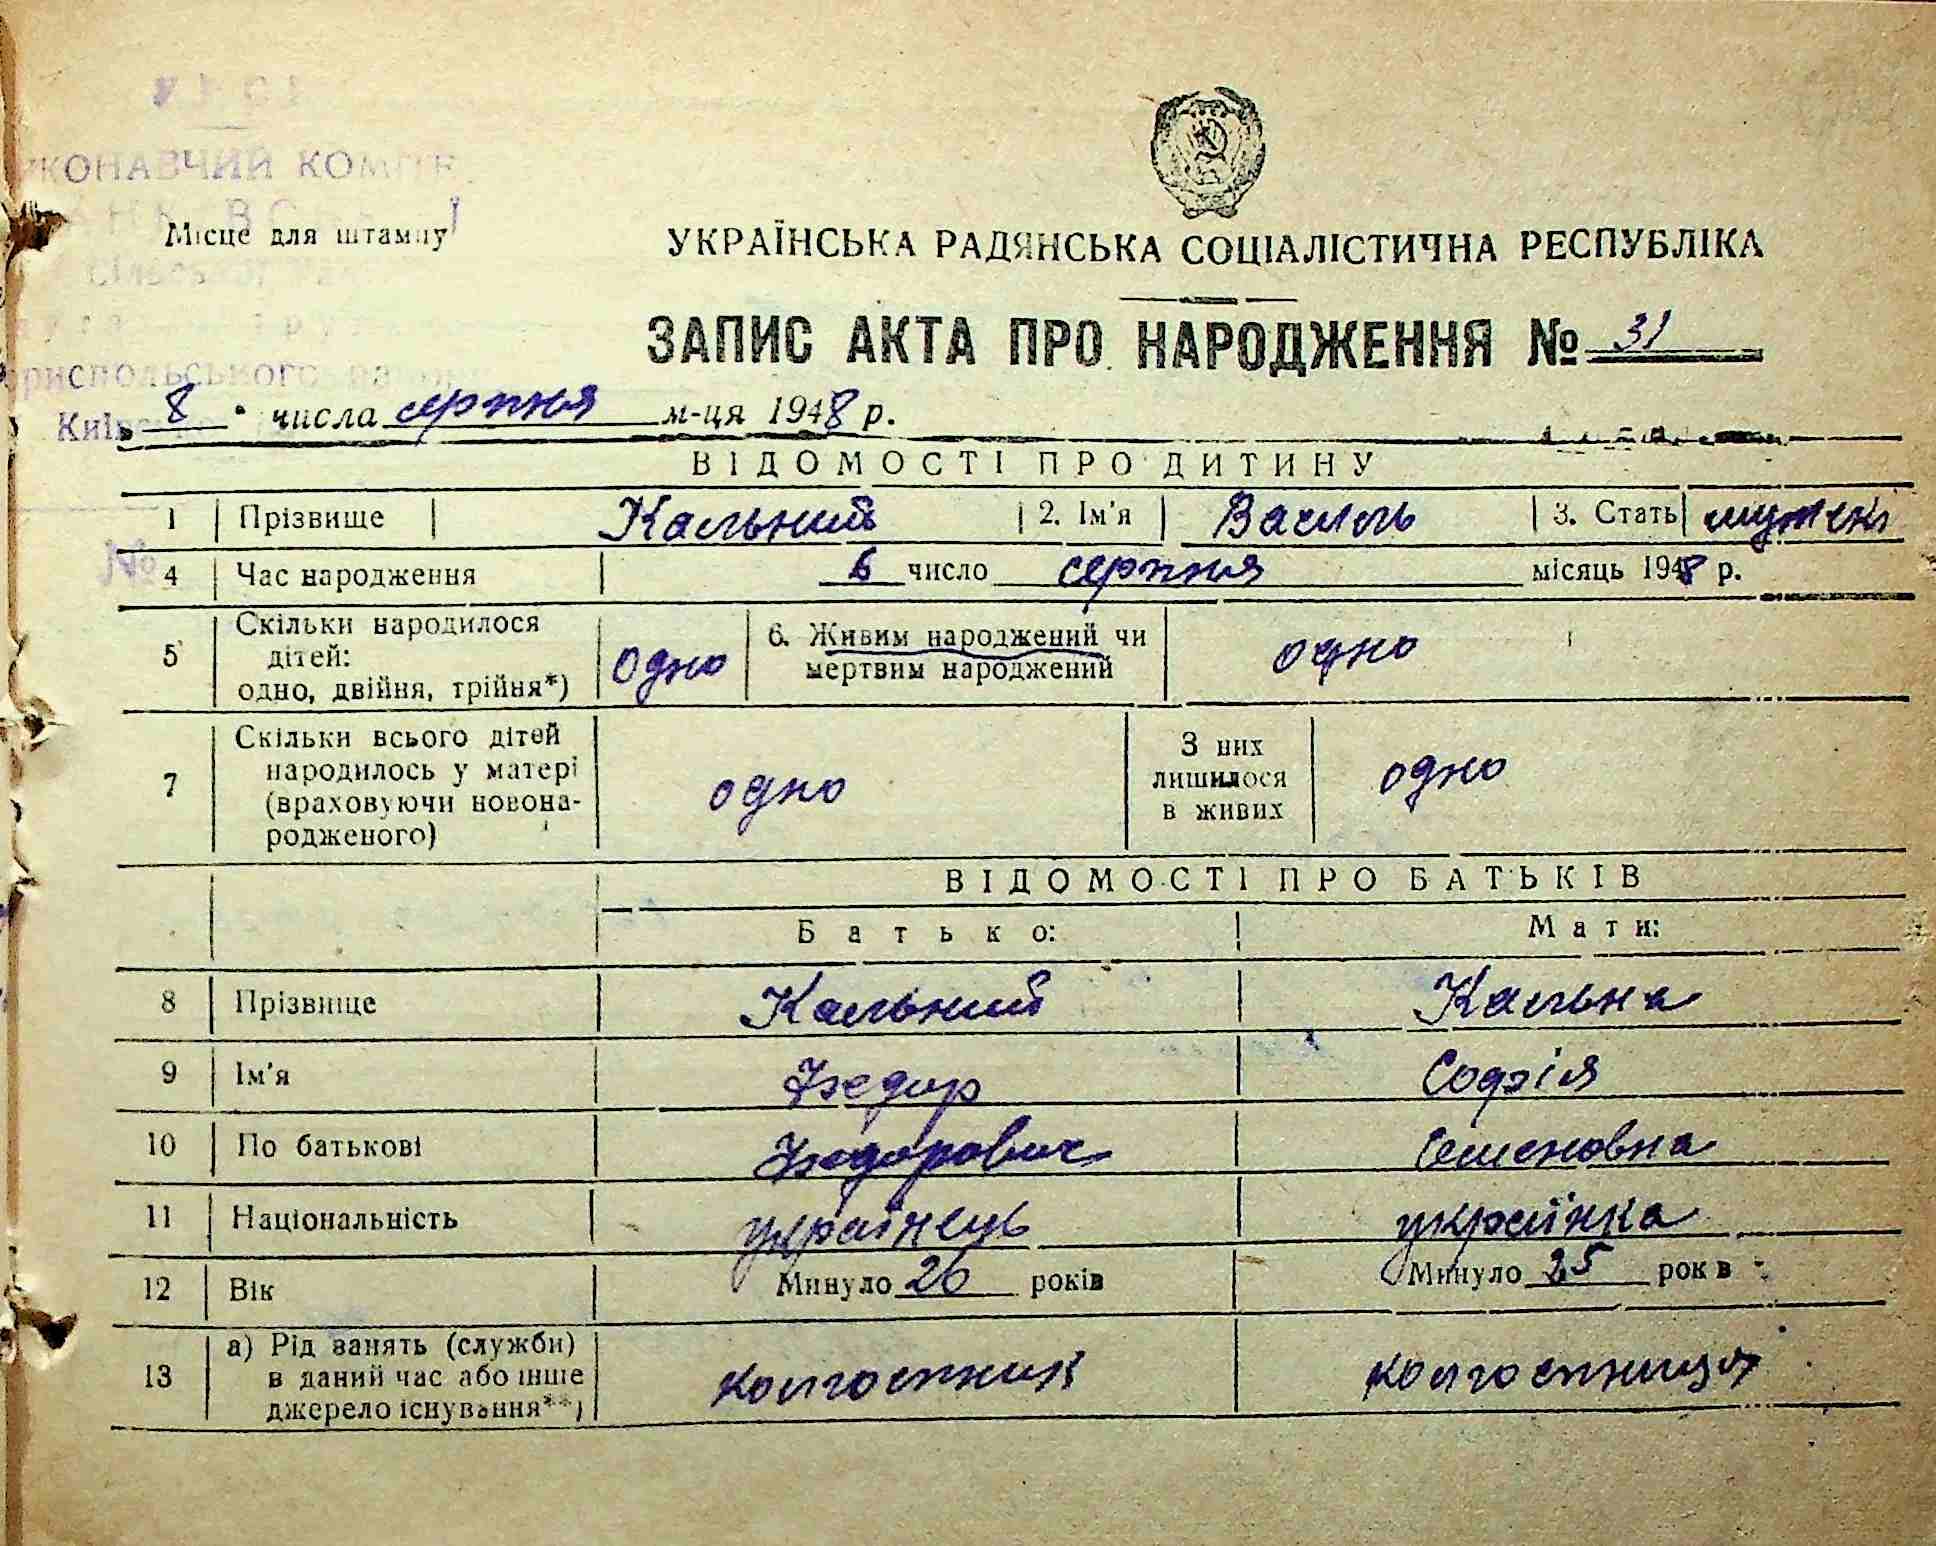 КОНАВЧИЙ КОМІТЕ
Місце для штампу
УКРАЇНСЬКА РАДЯНСЬКА СОЦІАЛІСТИЧНА РЕСПУБЛІКА
ЗАПИС АКТА ПРО НАРОДЖЕННЯ № 31
риспольського
„ 8 " числа серпня м-ця 1948 р.
ВІДОМОСТІ ПРО ДИТИНУ
1 Прізвище Кальний 2. Ім'я Василь 3. Стать мужскі
№
4 Час народження 6 число серпня місяць 1948 р.
5 Скільки народилося дітей: одно, двійня, трійня*) одно 6. Живим народжений чи мертвим народжений одно
7 Скільки всього дітей народилось у матері (враховуючи новонародженого) одно З них лишилося в живих одно
ВІДОМОСТІ ПРО БАТЬКІВ
Батько: Мати:
8 Прізвище Кальний Кальна
9 Ім'я Федор Софія
10 По батькові Федорович Семеновна
11 Національність українець українка
12 Вік Минуло 26 років Минуло 25 років
13 а) Рід занять (служби) в даний час або інше джерело існування**) колгоспник колгоспниця